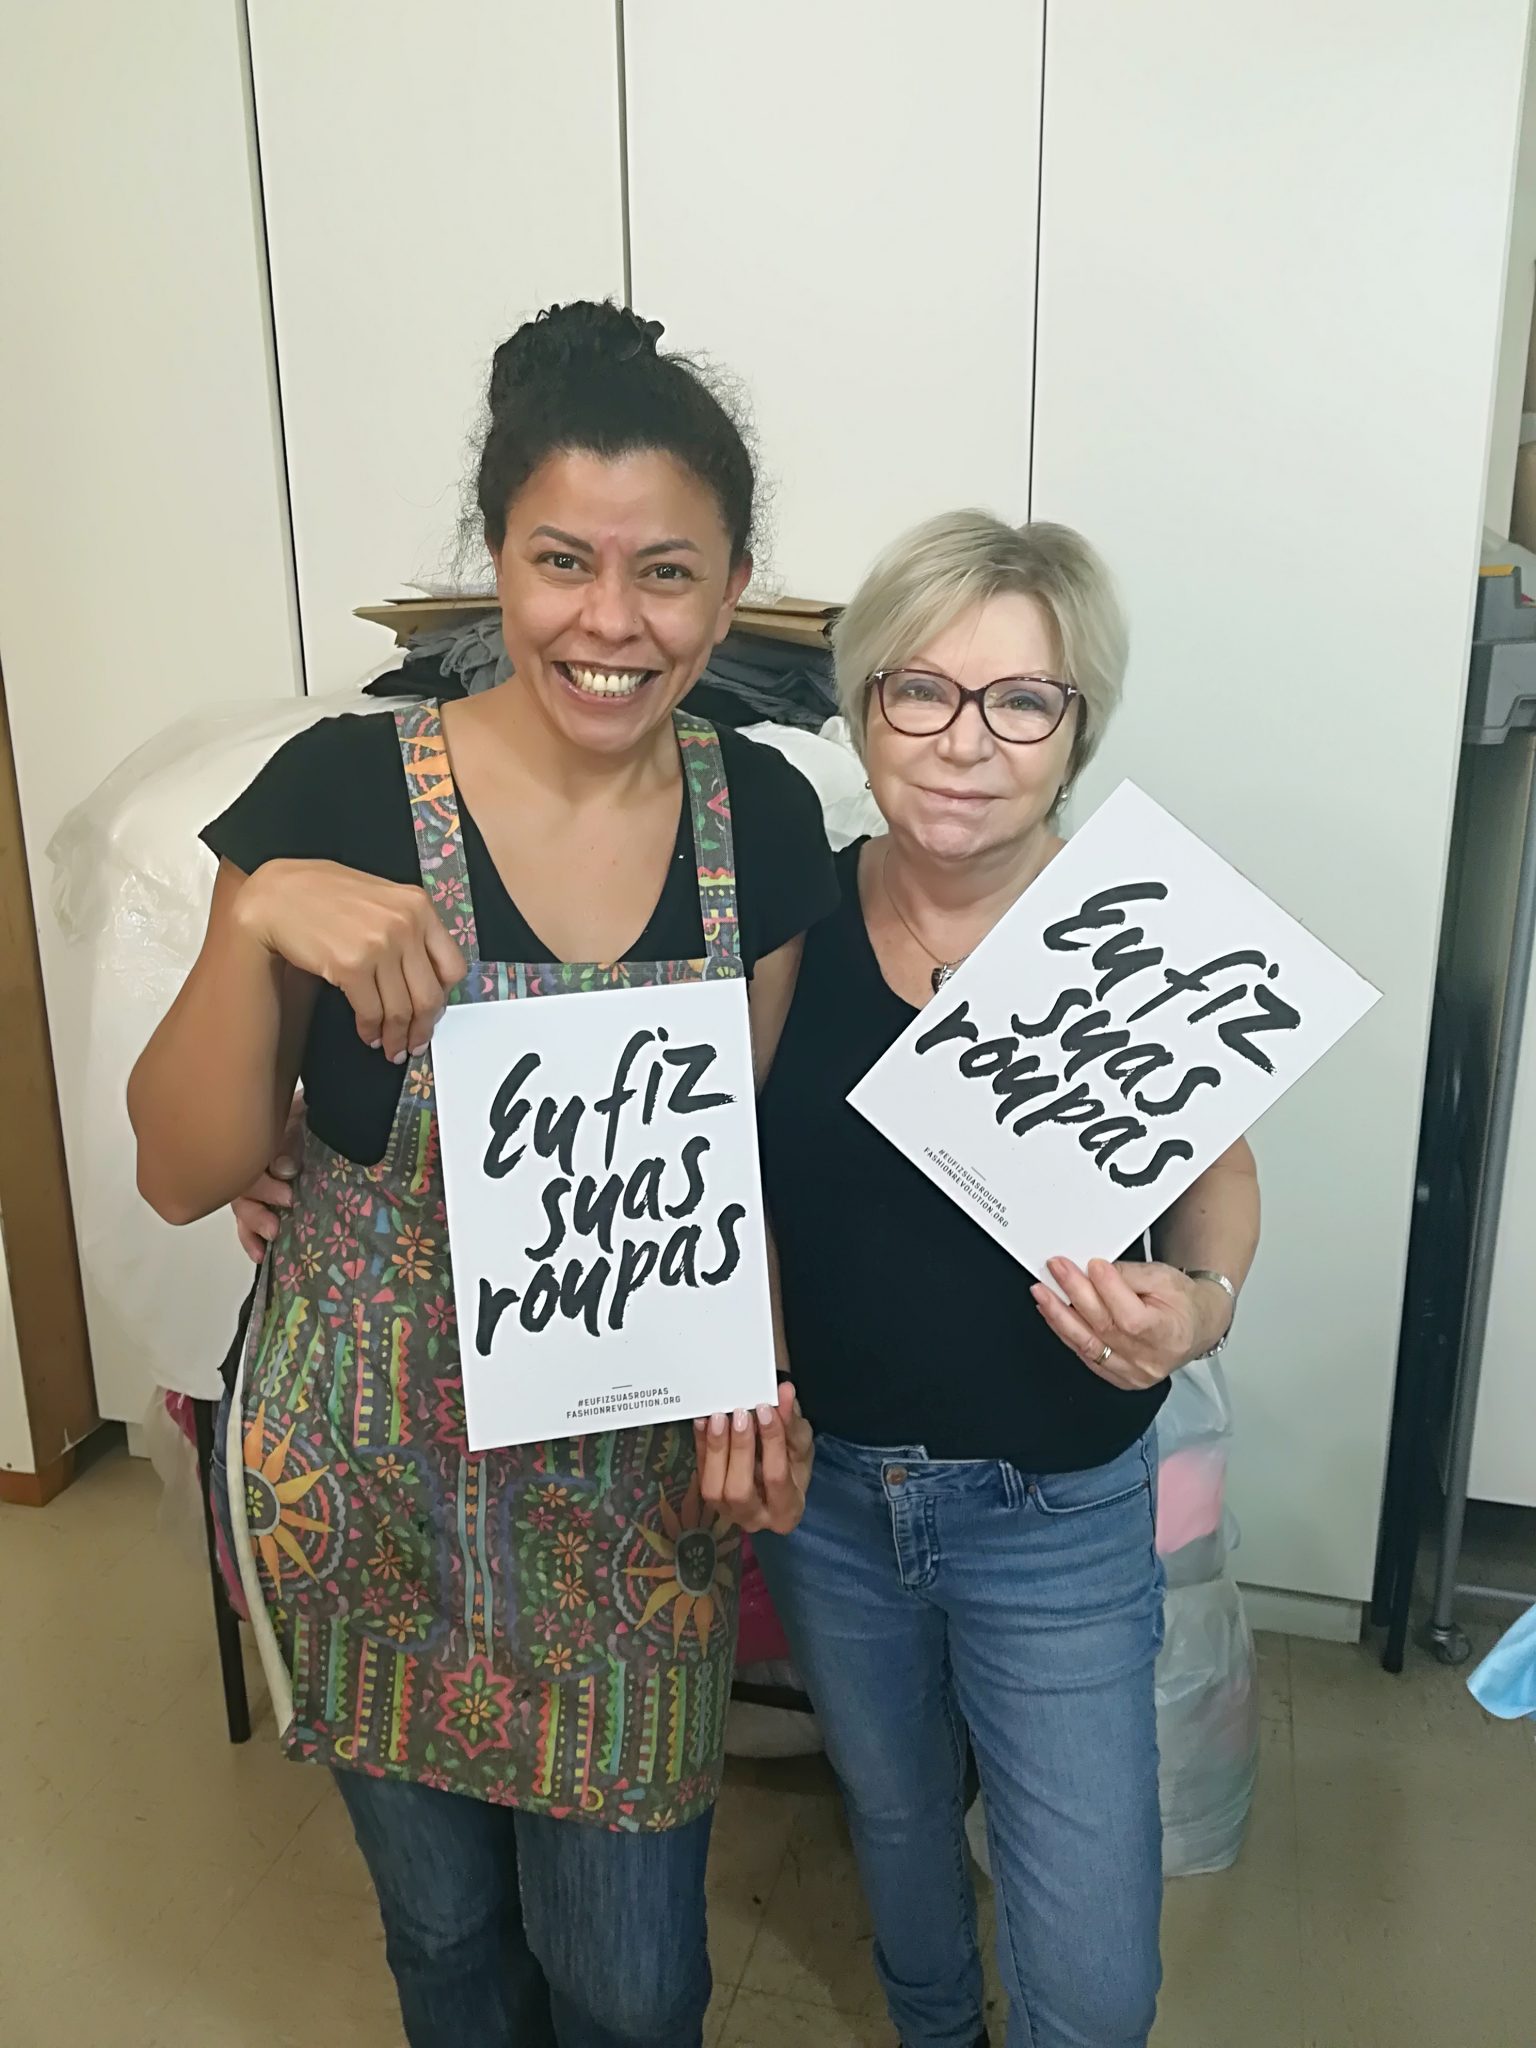 Eu fiz
suas
roupas
#EUFIZSUASROUPAS
FASHIONREVOLUTION.ORG
Eu fiz
suas
roupas
#EUFIZSUASROUPAS
FASHIONREVOLUTION.ORG